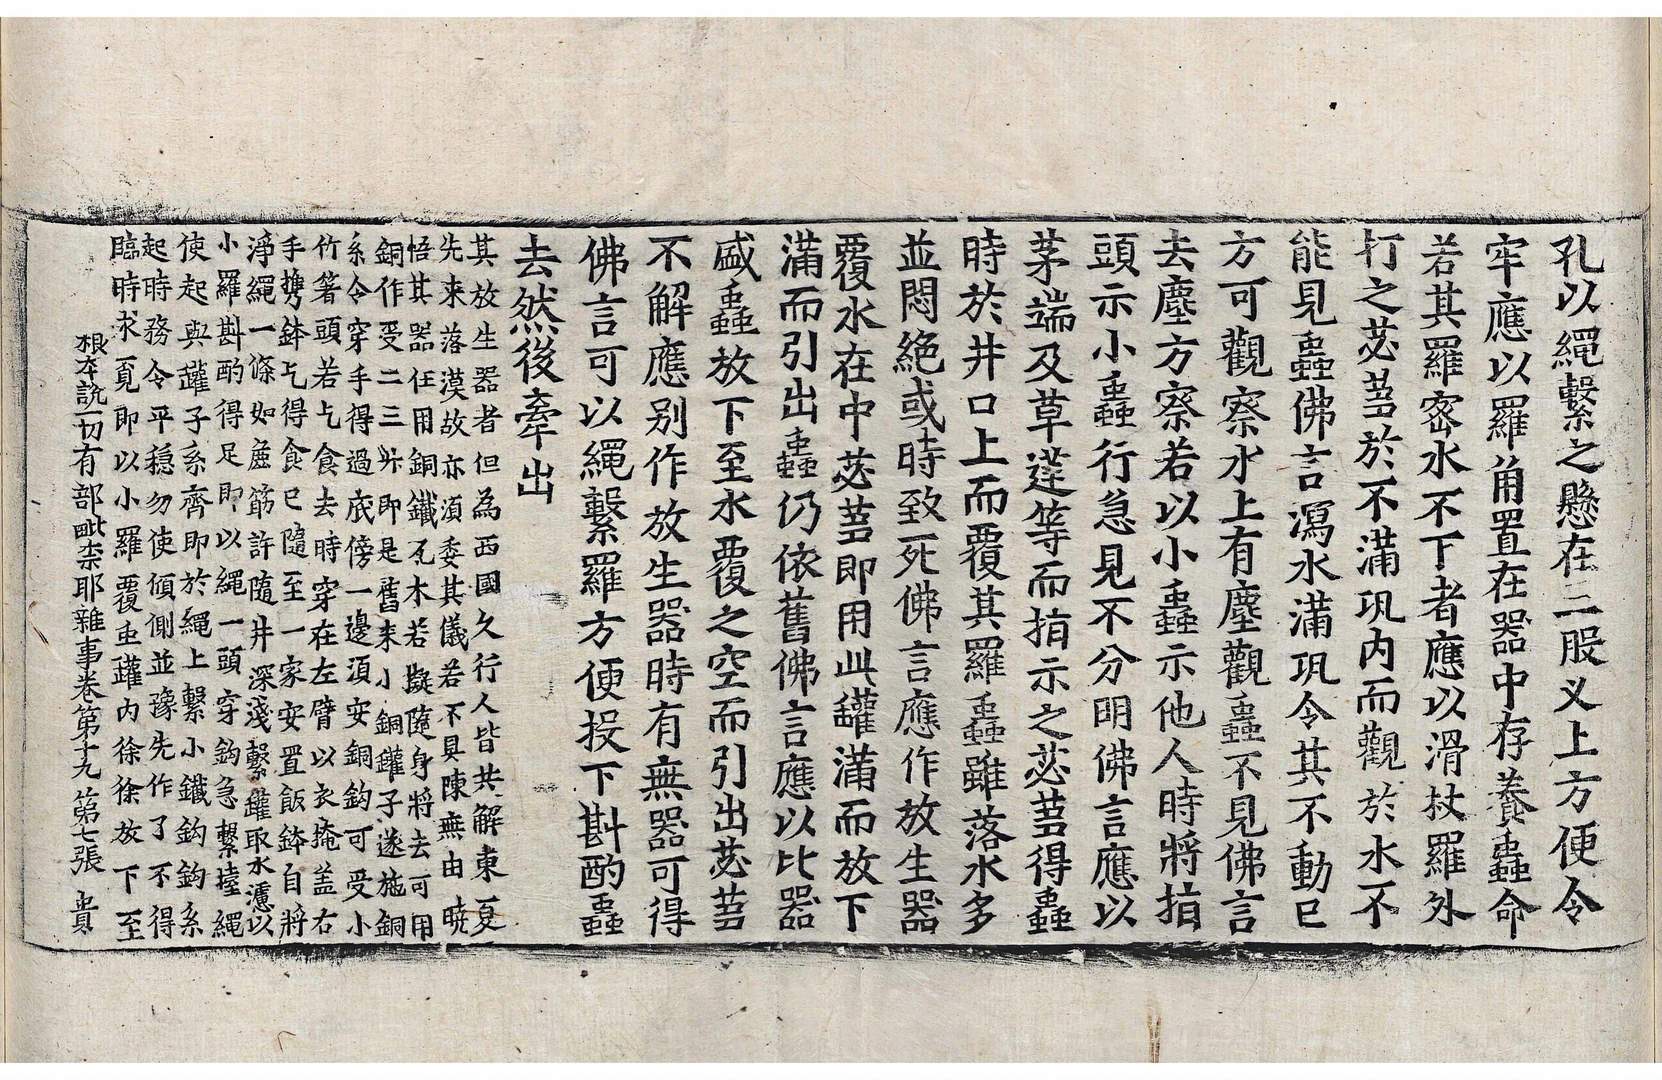 孔以繩繫之懸在三股叉上方便令
牢應以羅角置在器中存養蟲命
若其羅密水不下者應以滑杖羅外
打之苾芻於不滿瓨內而觀於水不
能見蟲佛言瀉水滿瓨令其不動已
方可觀察水上有塵觀蟲不見佛言
去塵方察若以小蟲示他人時將指
頭示小蟲行急見不分明佛言應以
茅端及草莛等而指示之苾芻得蟲
時於井口上而覆其羅蟲雖落水多
並悶絕或時致死佛言應作放生器
覆水在中苾芻即用此罐滿而放下
滿而引出蟲仍依舊佛言應以比器
盛蟲放下至水覆之空而引出苾芻
不解應別作放生器時有無器可得
佛言可以繩繫羅方便投下斟酌蟲
去然後牽出
其放生器者但為西國久行人皆共解東夏
先來落漠故亦須委其儀若不具陳無由曉
悟其器任用銅鐵瓦木若擬隨身將去可用
銅作受二三升即是舊來小銅罐子遂施銅
系令穿手得過底傍一邊須安銅鉤可受小
竹箸頭若乞食去時穿在左臂以衣掩蓋右
手擕鉢乞得食已隨至一家安置飯鉢自將
淨繩一條如麁筋許隨井深淺繫罐取水濾以
小羅斟酌得足即以繩一頭穿鉤急繫擡繩
使起與罐子系齊即於繩上繫小鐵鉤鉤系
起時務令平穩勿使傾側並豫先作了不得
臨時求覓即以小羅覆虫罐內徐徐放下至
根本說一切有部毗柰耶雜事卷第十九 第七張 貴